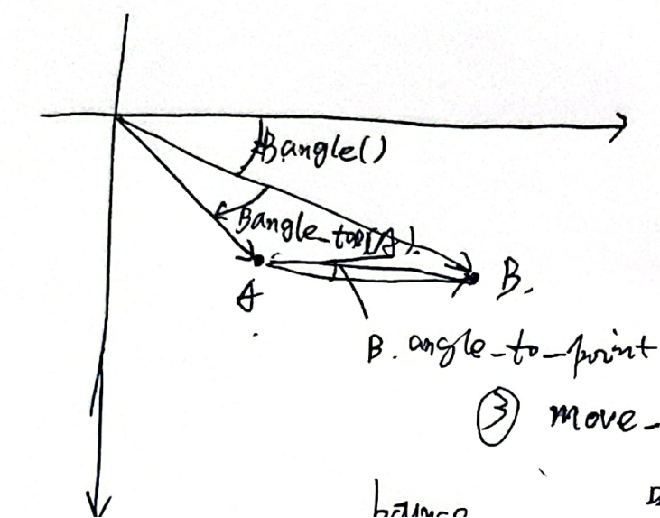 B.angle()
B angle_to(A).
A
B.
B. angle_to_point
③ move_
bounce